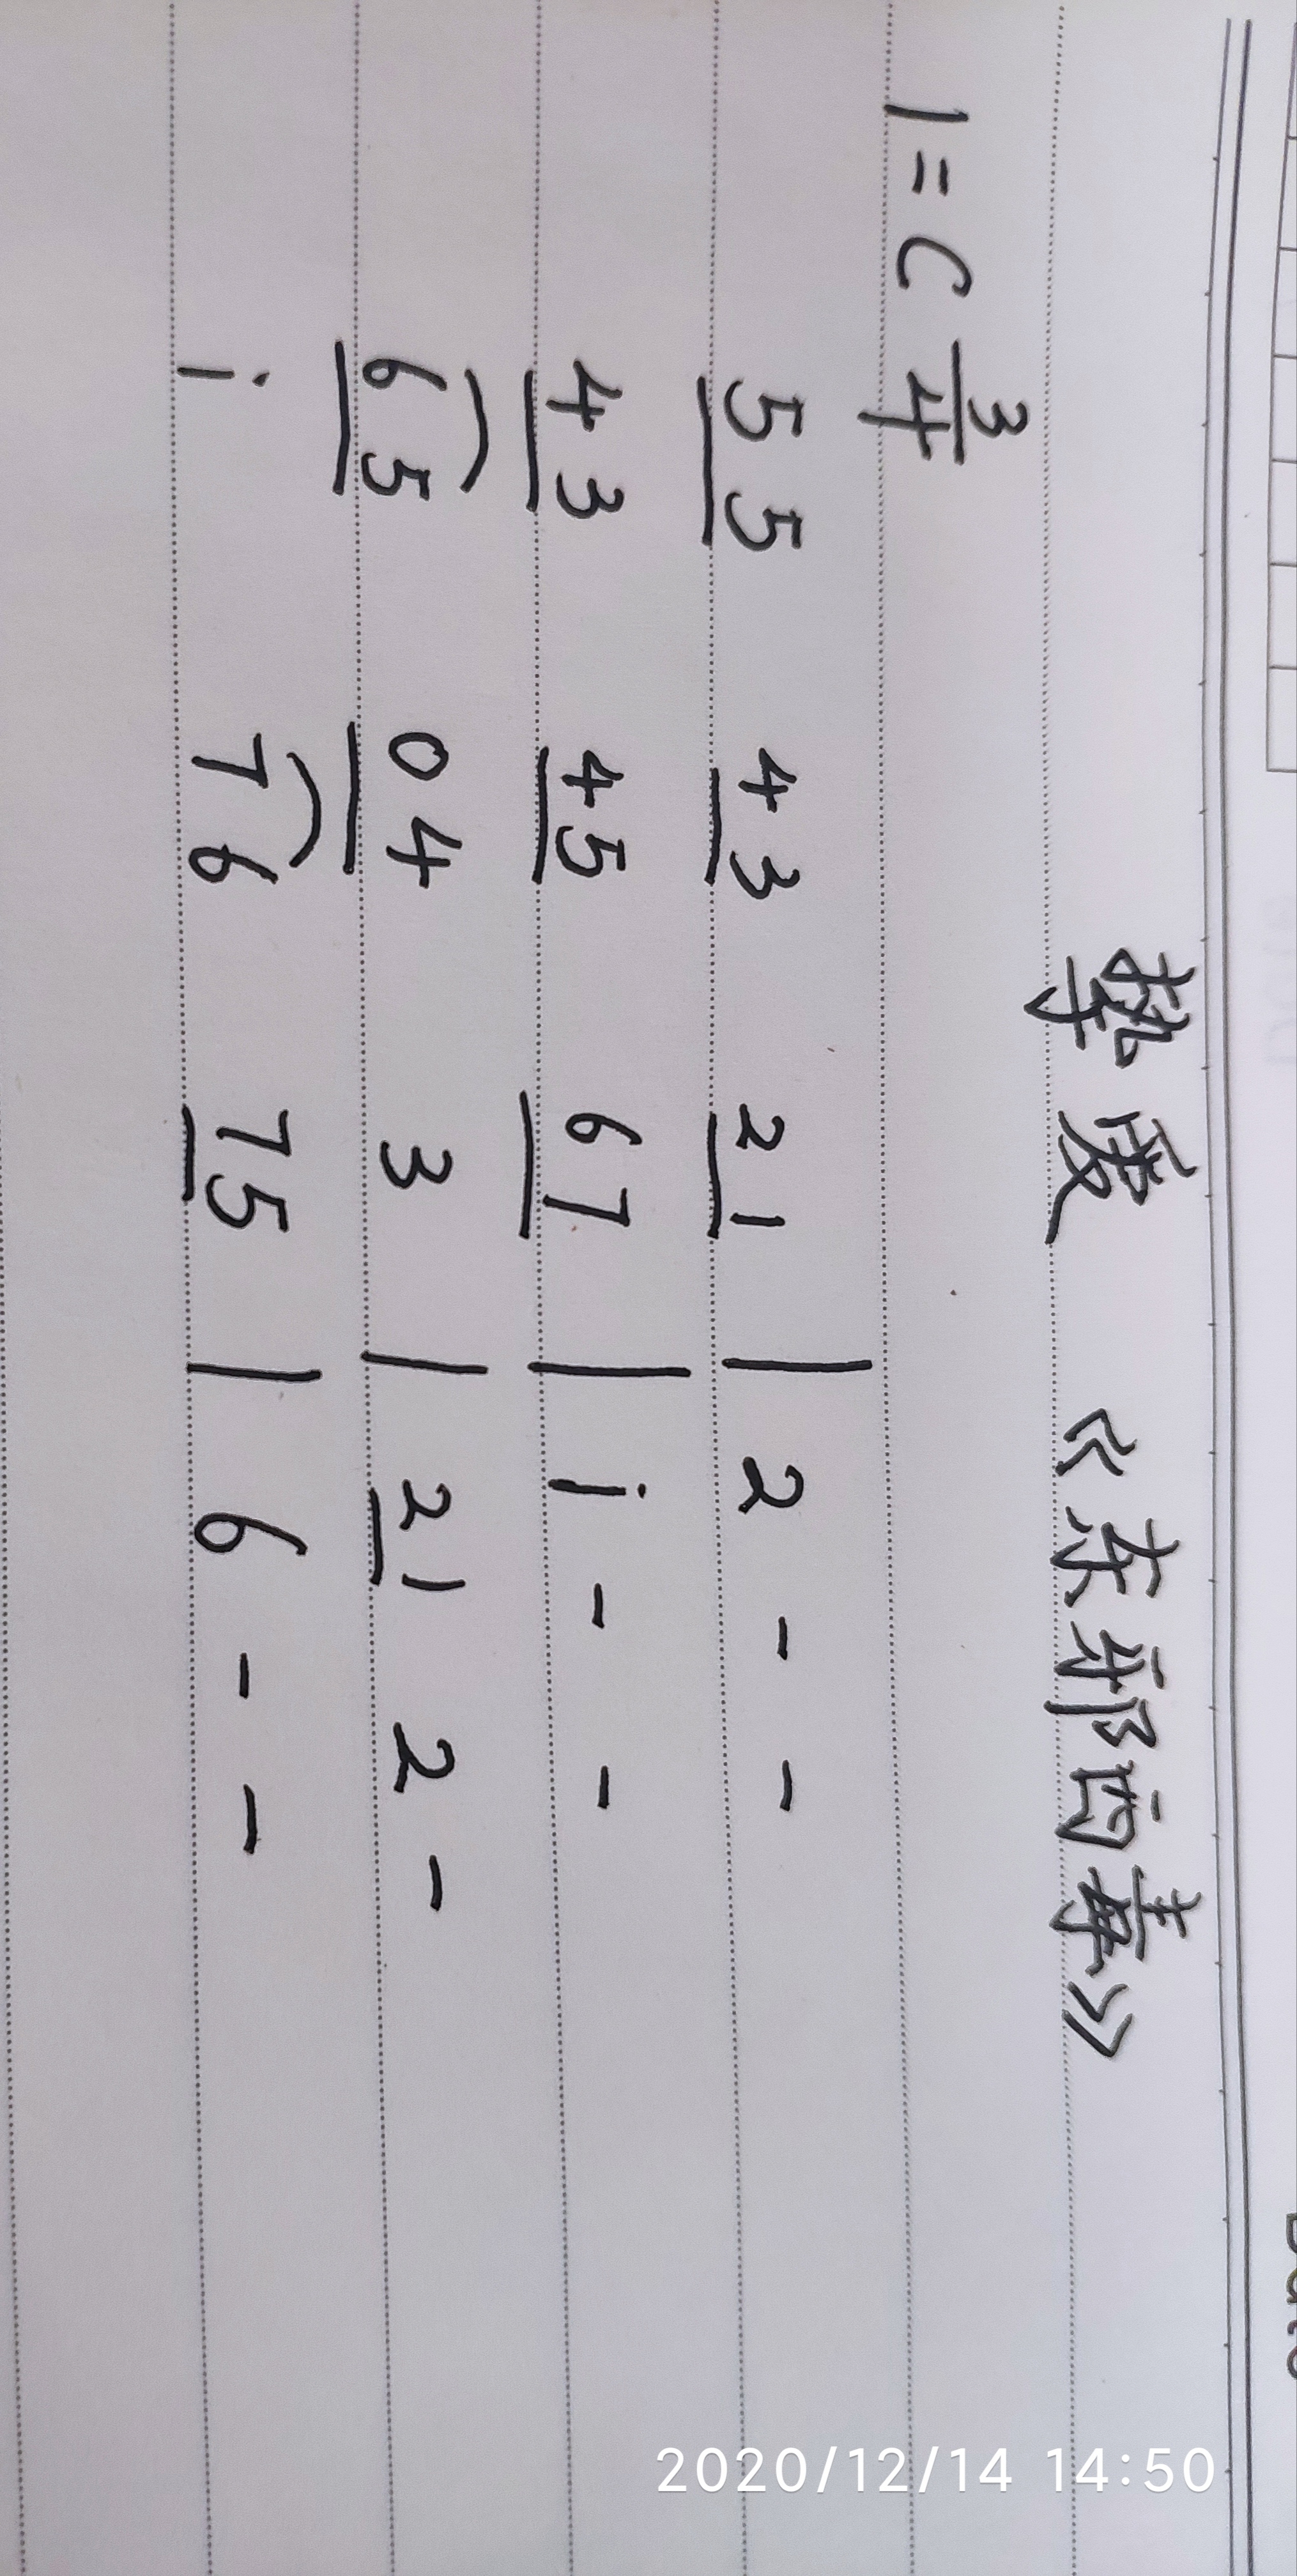 挚爱 《东邪西毒》
1=C 3/4
5 5 4 3 2 1 | 2 - -
4 3 4 5 6 7 | i - -
6 5 0 4 3 | 2 1 2 -
i 7 6 7 5 | 6 - -
2020/12/14 14:50